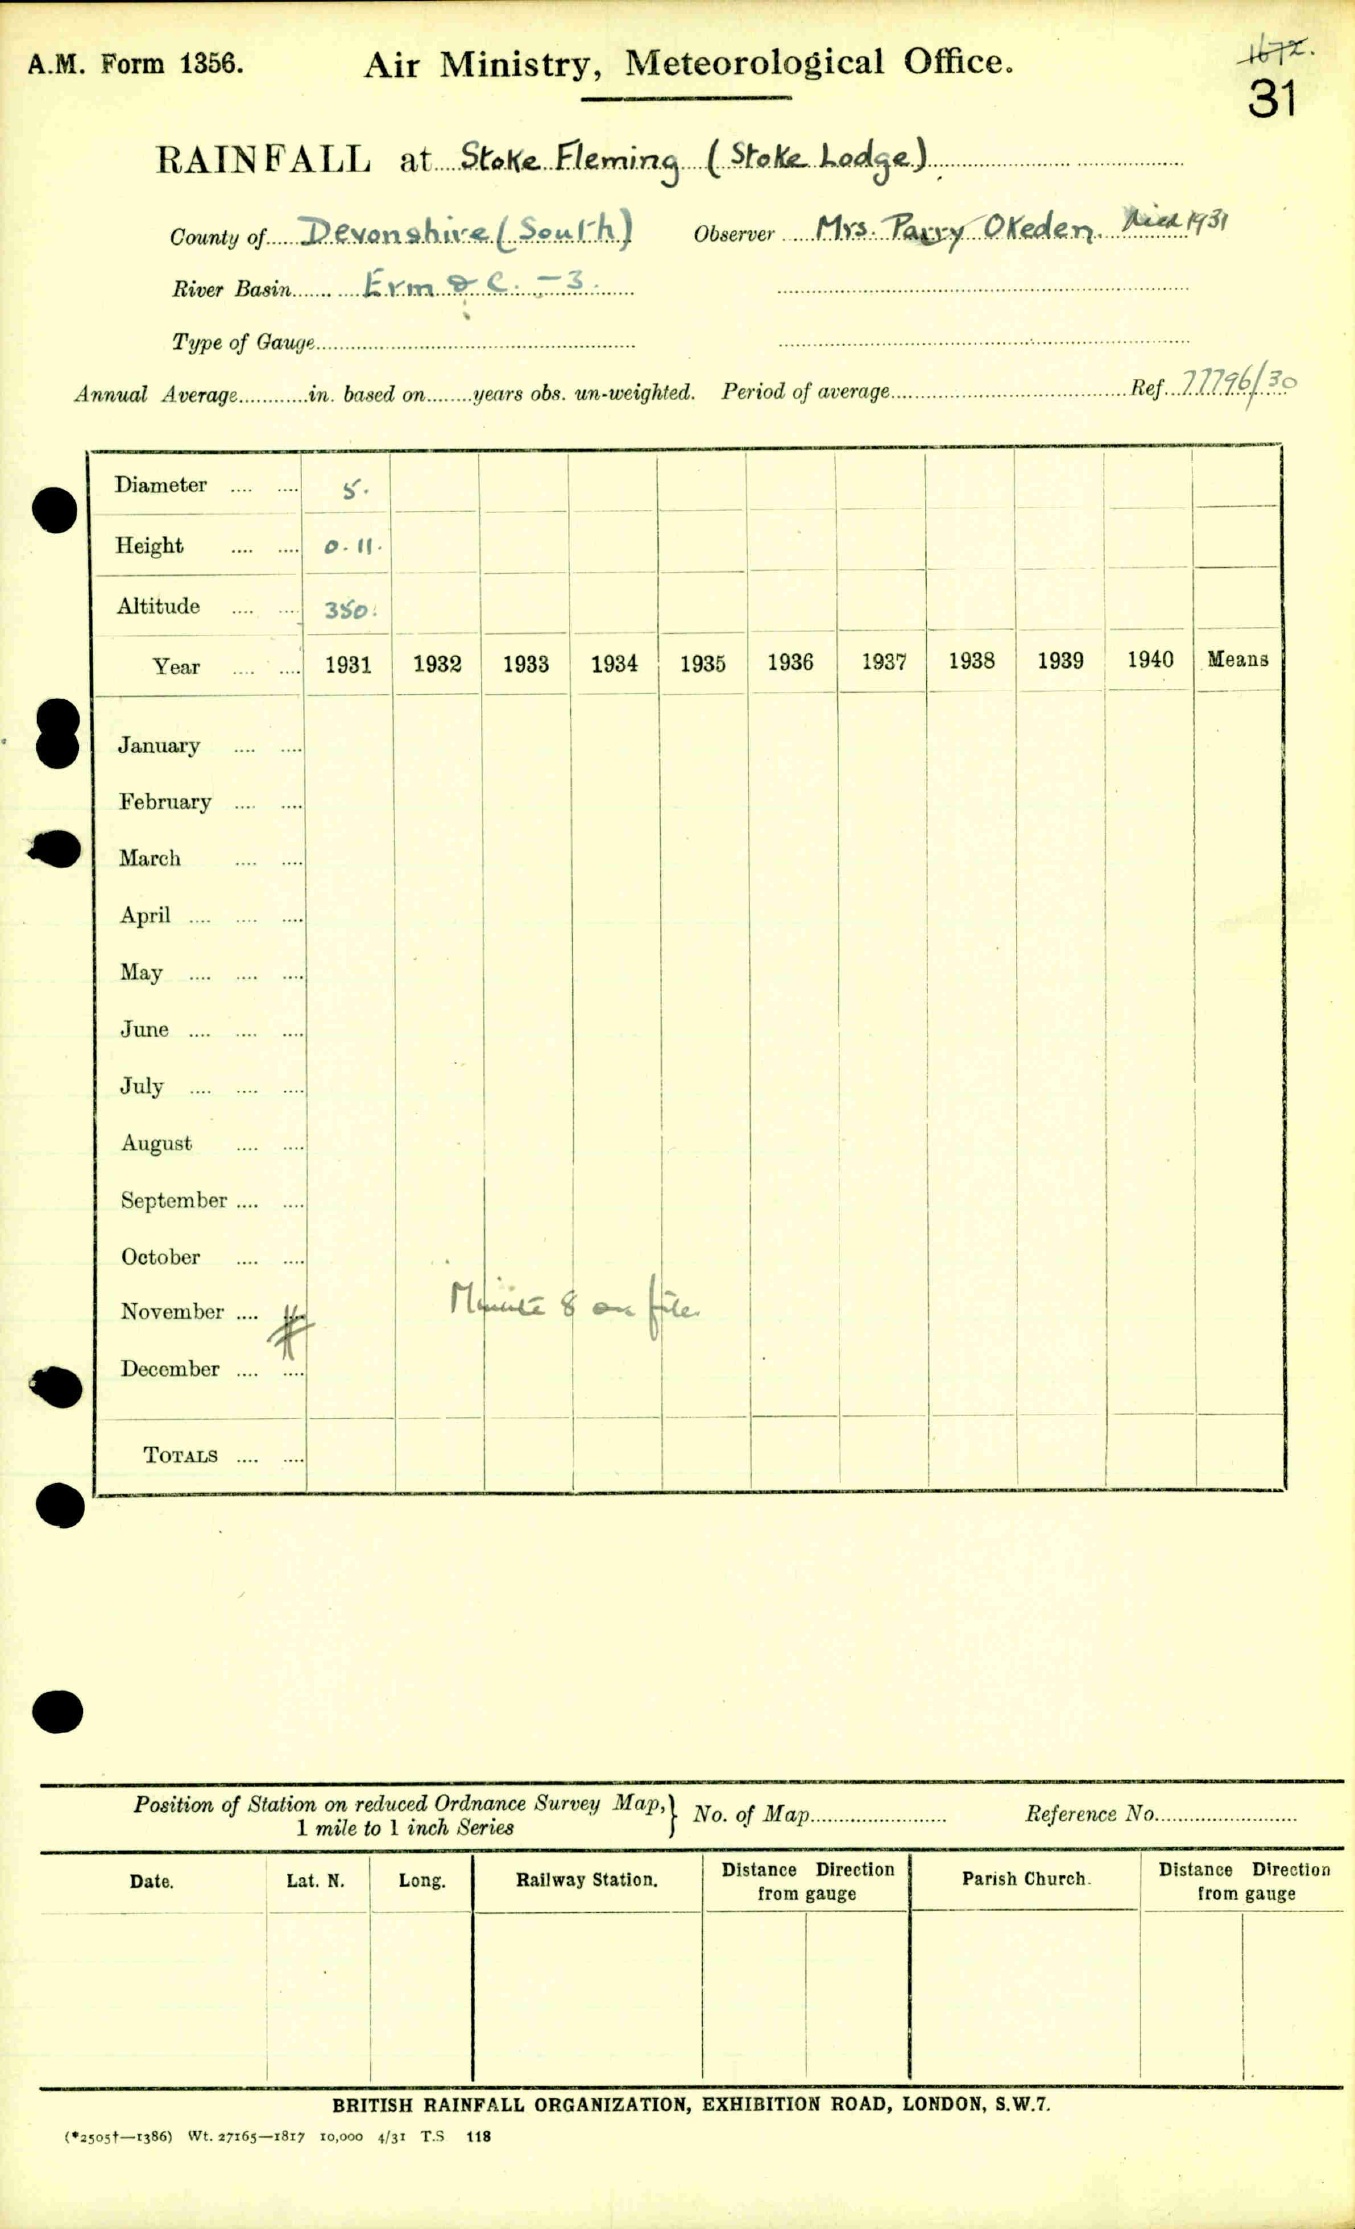 A.M. Form 1356. Air Ministry, Meteorological Office. 1672.
31
RAINFALL at Stoke Fleming (Stoke Lodge)
County of Devonshire (South) Observer Mrs. Parry Okeden. Died 1931
River Basin Erm & C. - 3.
Type of Gauge
Annual Average in. based on years obs. un-weighted. Period of average Ref. 77796/30
Diameter .... .... 5.
Height .... .... 0.11.
Altitude .... .... 350.
Year .... .... 1931 1932 1933 1934 1935 1936 1937 1938 1939 1940 Means
January .... ....
February .... ....
March .... ....
April .... .... ....
May .... .... ....
June .... .... ....
July .... .... ....
August .... ....
September .... ....
October .... ....
November .... .... Minute 8 on file.
December .... ....
TOTALS .... ....
Position of Station on reduced Ordnance Survey Map, } No. of Map Reference No.
1 mile to 1 inch Series
Date. Lat. N. Long. Railway Station. Distance Direction from gauge Parish Church. Distance Direction from gauge
BRITISH RAINFALL ORGANIZATION, EXHIBITION ROAD, LONDON, S.W.7.
(*2505†—1386) Wt. 27165—1817 10,000 4/31 T.S 118